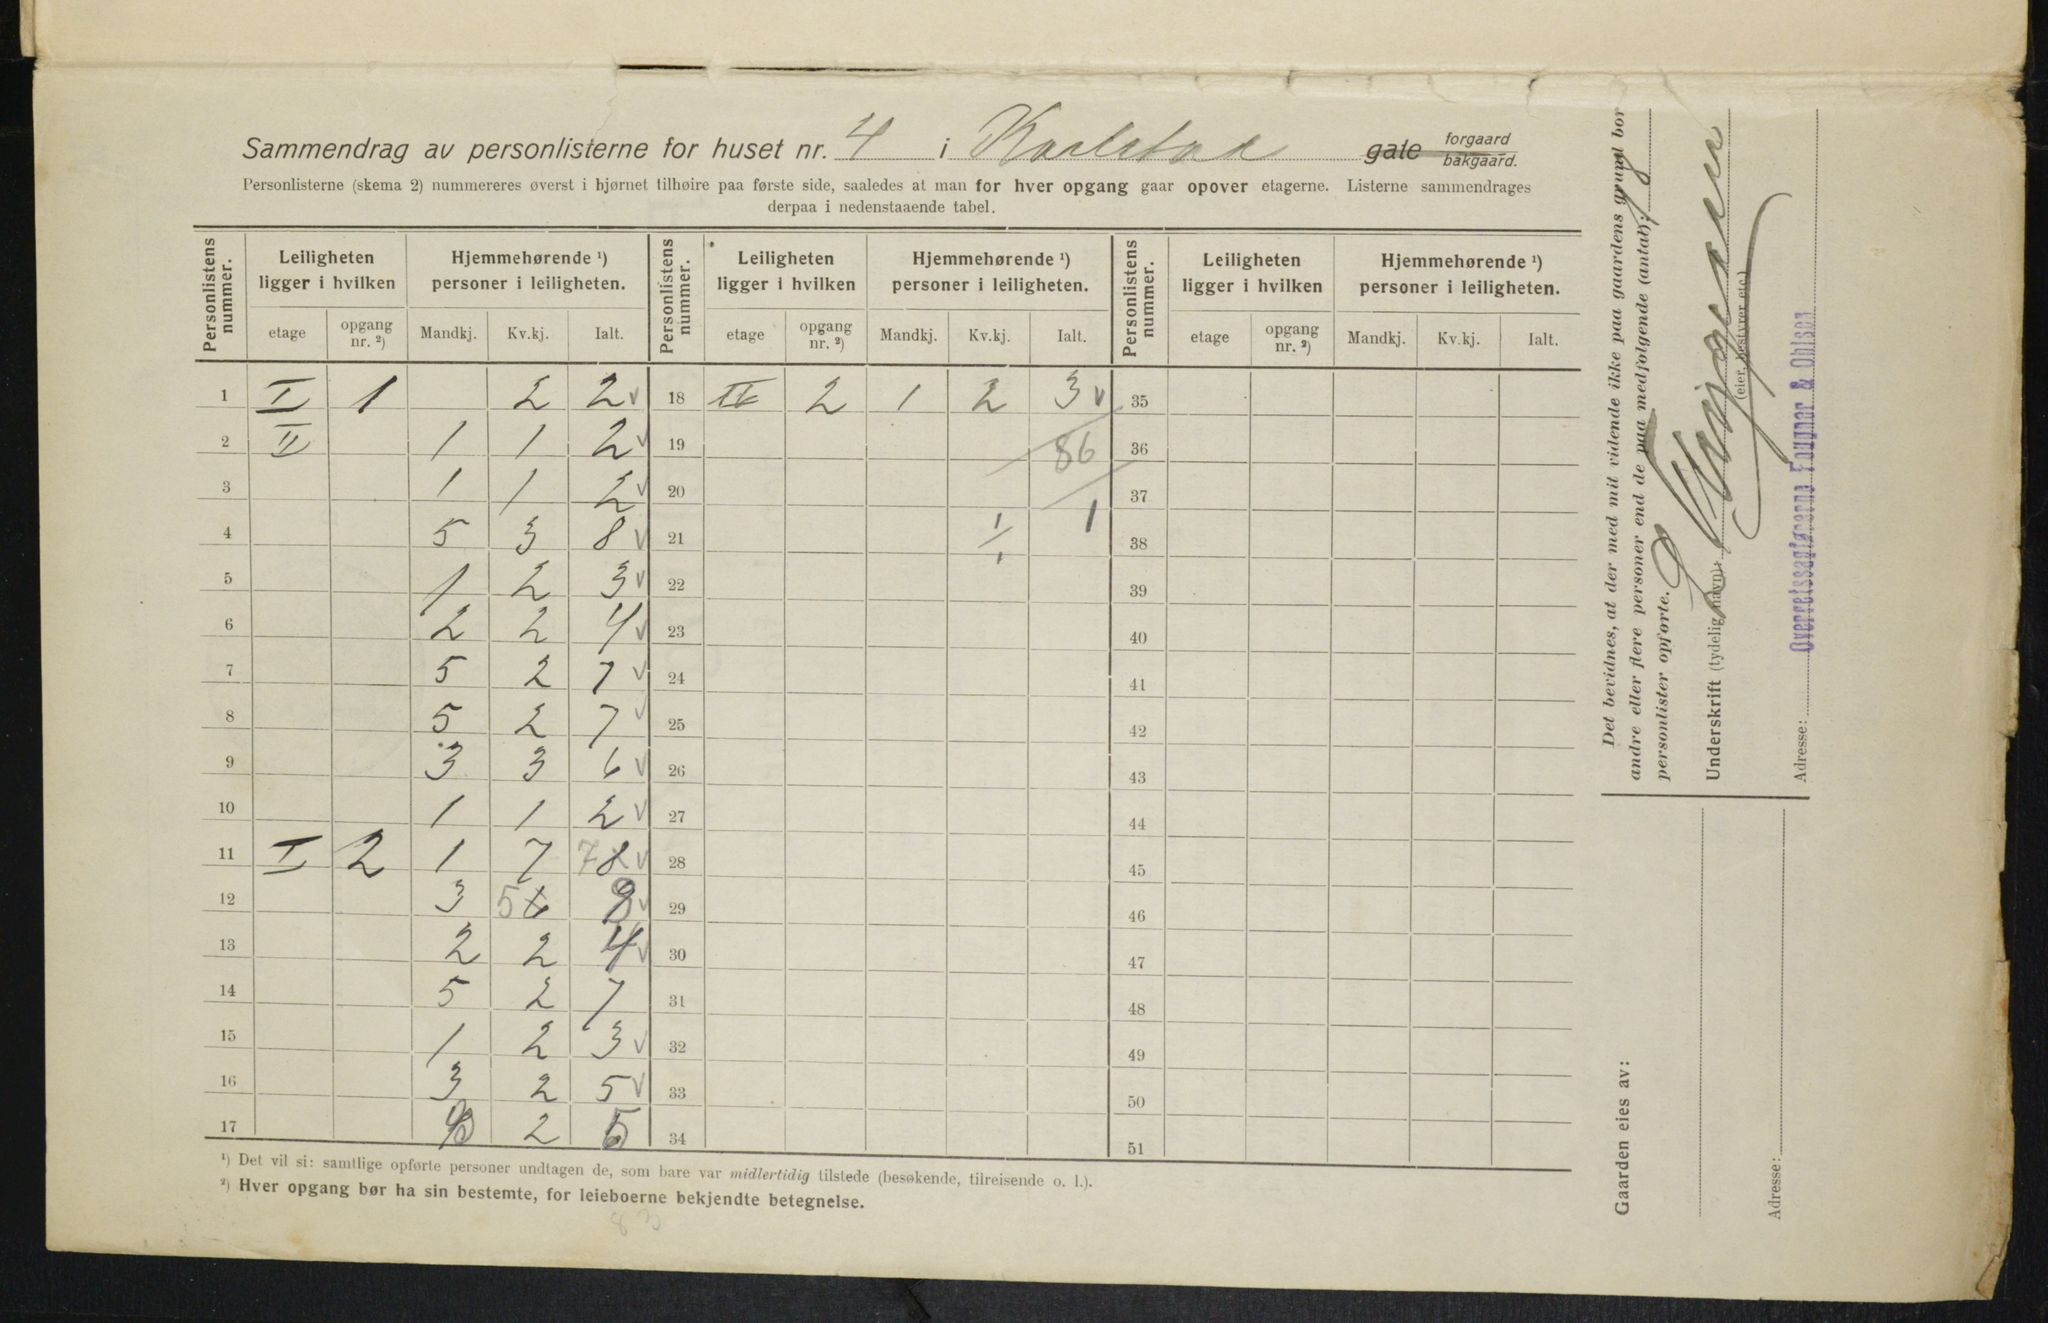 Sammendrag av personlisterne for huset nr. 4 i Karlstad gate forgaard bakgaard.
Personlisterne (skema 2) nummereres øverst i hjørnet tilhøire paa første side, saaledes at man for hver opgang gaar opover etagerne. Listerne sammendrages
derpaa i nedenstaaende tabel.
Personlistens nummer. Leiligheten ligger i hvilken Hjemmehørende ¹) personer i leiligheten. Personlistens nummer. Leiligheten ligger i hvilken Hjemmehørende ¹) personer i leiligheten. Personlistens nummer. Leiligheten ligger i hvilken Hjemmehørende ¹) personer i leiligheten.
etage opgang nr. ²) Mandkj. Kv.kj. Ialt. etage opgang nr. ²) Mandkj. Kv.kj. Ialt. etage opgang nr. ²) Mandkj. Kv.kj. Ialt.
1 I 1 2 2 v 18 II 2 1 2 3 v 35
2 II 1 1 2 v 19 86 36
3 1 1 2 v 20 37
4 5 3 8 v 21 1 1 38
5 1 2 3 v 22 39
6 2 2 4 v 23 40
7 5 2 7 v 24 41
8 5 2 7 v 25 42
9 3 3 6 v 26 43
10 1 1 2 v 27 44
11 I 2 1 7 7 8 v 28 45
12 3 5 6 8 v 29 46
13 2 2 4 v 30 47
14 5 2 7 31 48
15 1 2 3 v 32 49
16 3 2 5 v 33 50
17 3 2 5 34 51
¹) Det vil si: samtlige opførte personer undtagen de, som bare var midlertidig tilstede (besøkende, tilreisende o. l.).
²) Hver opgang bør ha sin bestemte, for leieboerne bekjendte betegnelse.
83
Det bevidnes, at der med mit vidende ikke paa gaardens grund bor
andre eller flere personer end de paa medfølgende (antal):
personlister opførte.
Underskrift (tydelig navn):
(eier, bestyrer etc.)
Adresse: Overretssagførerne Fougner & Ohlsen
Gaarden eies av:
Adresse: